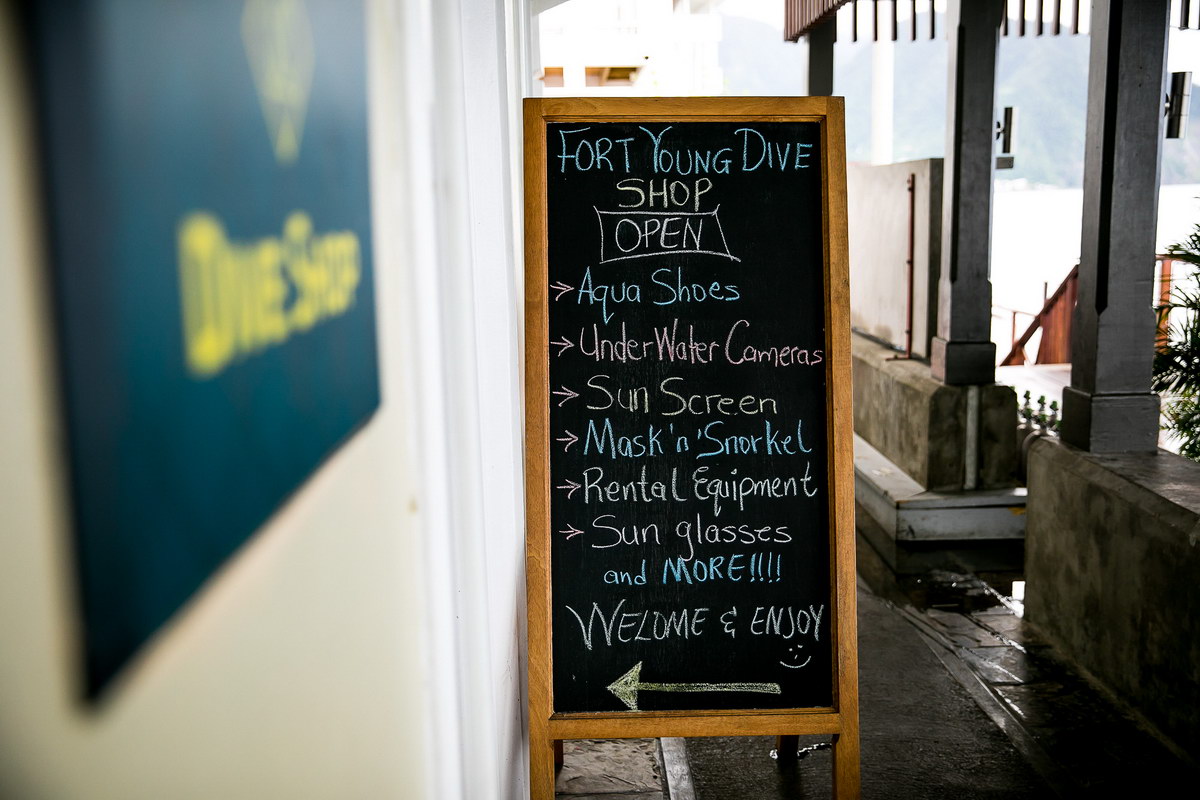 Dive Shop
FORT YOUNG DIVE
SHOP
OPEN
Aqua Shoes
UnderWater Cameras
Sun Screen
Mask 'n' Snorkel
Rental Equipment
Sun glasses
and MORE!!!!
WELOME & ENJOY